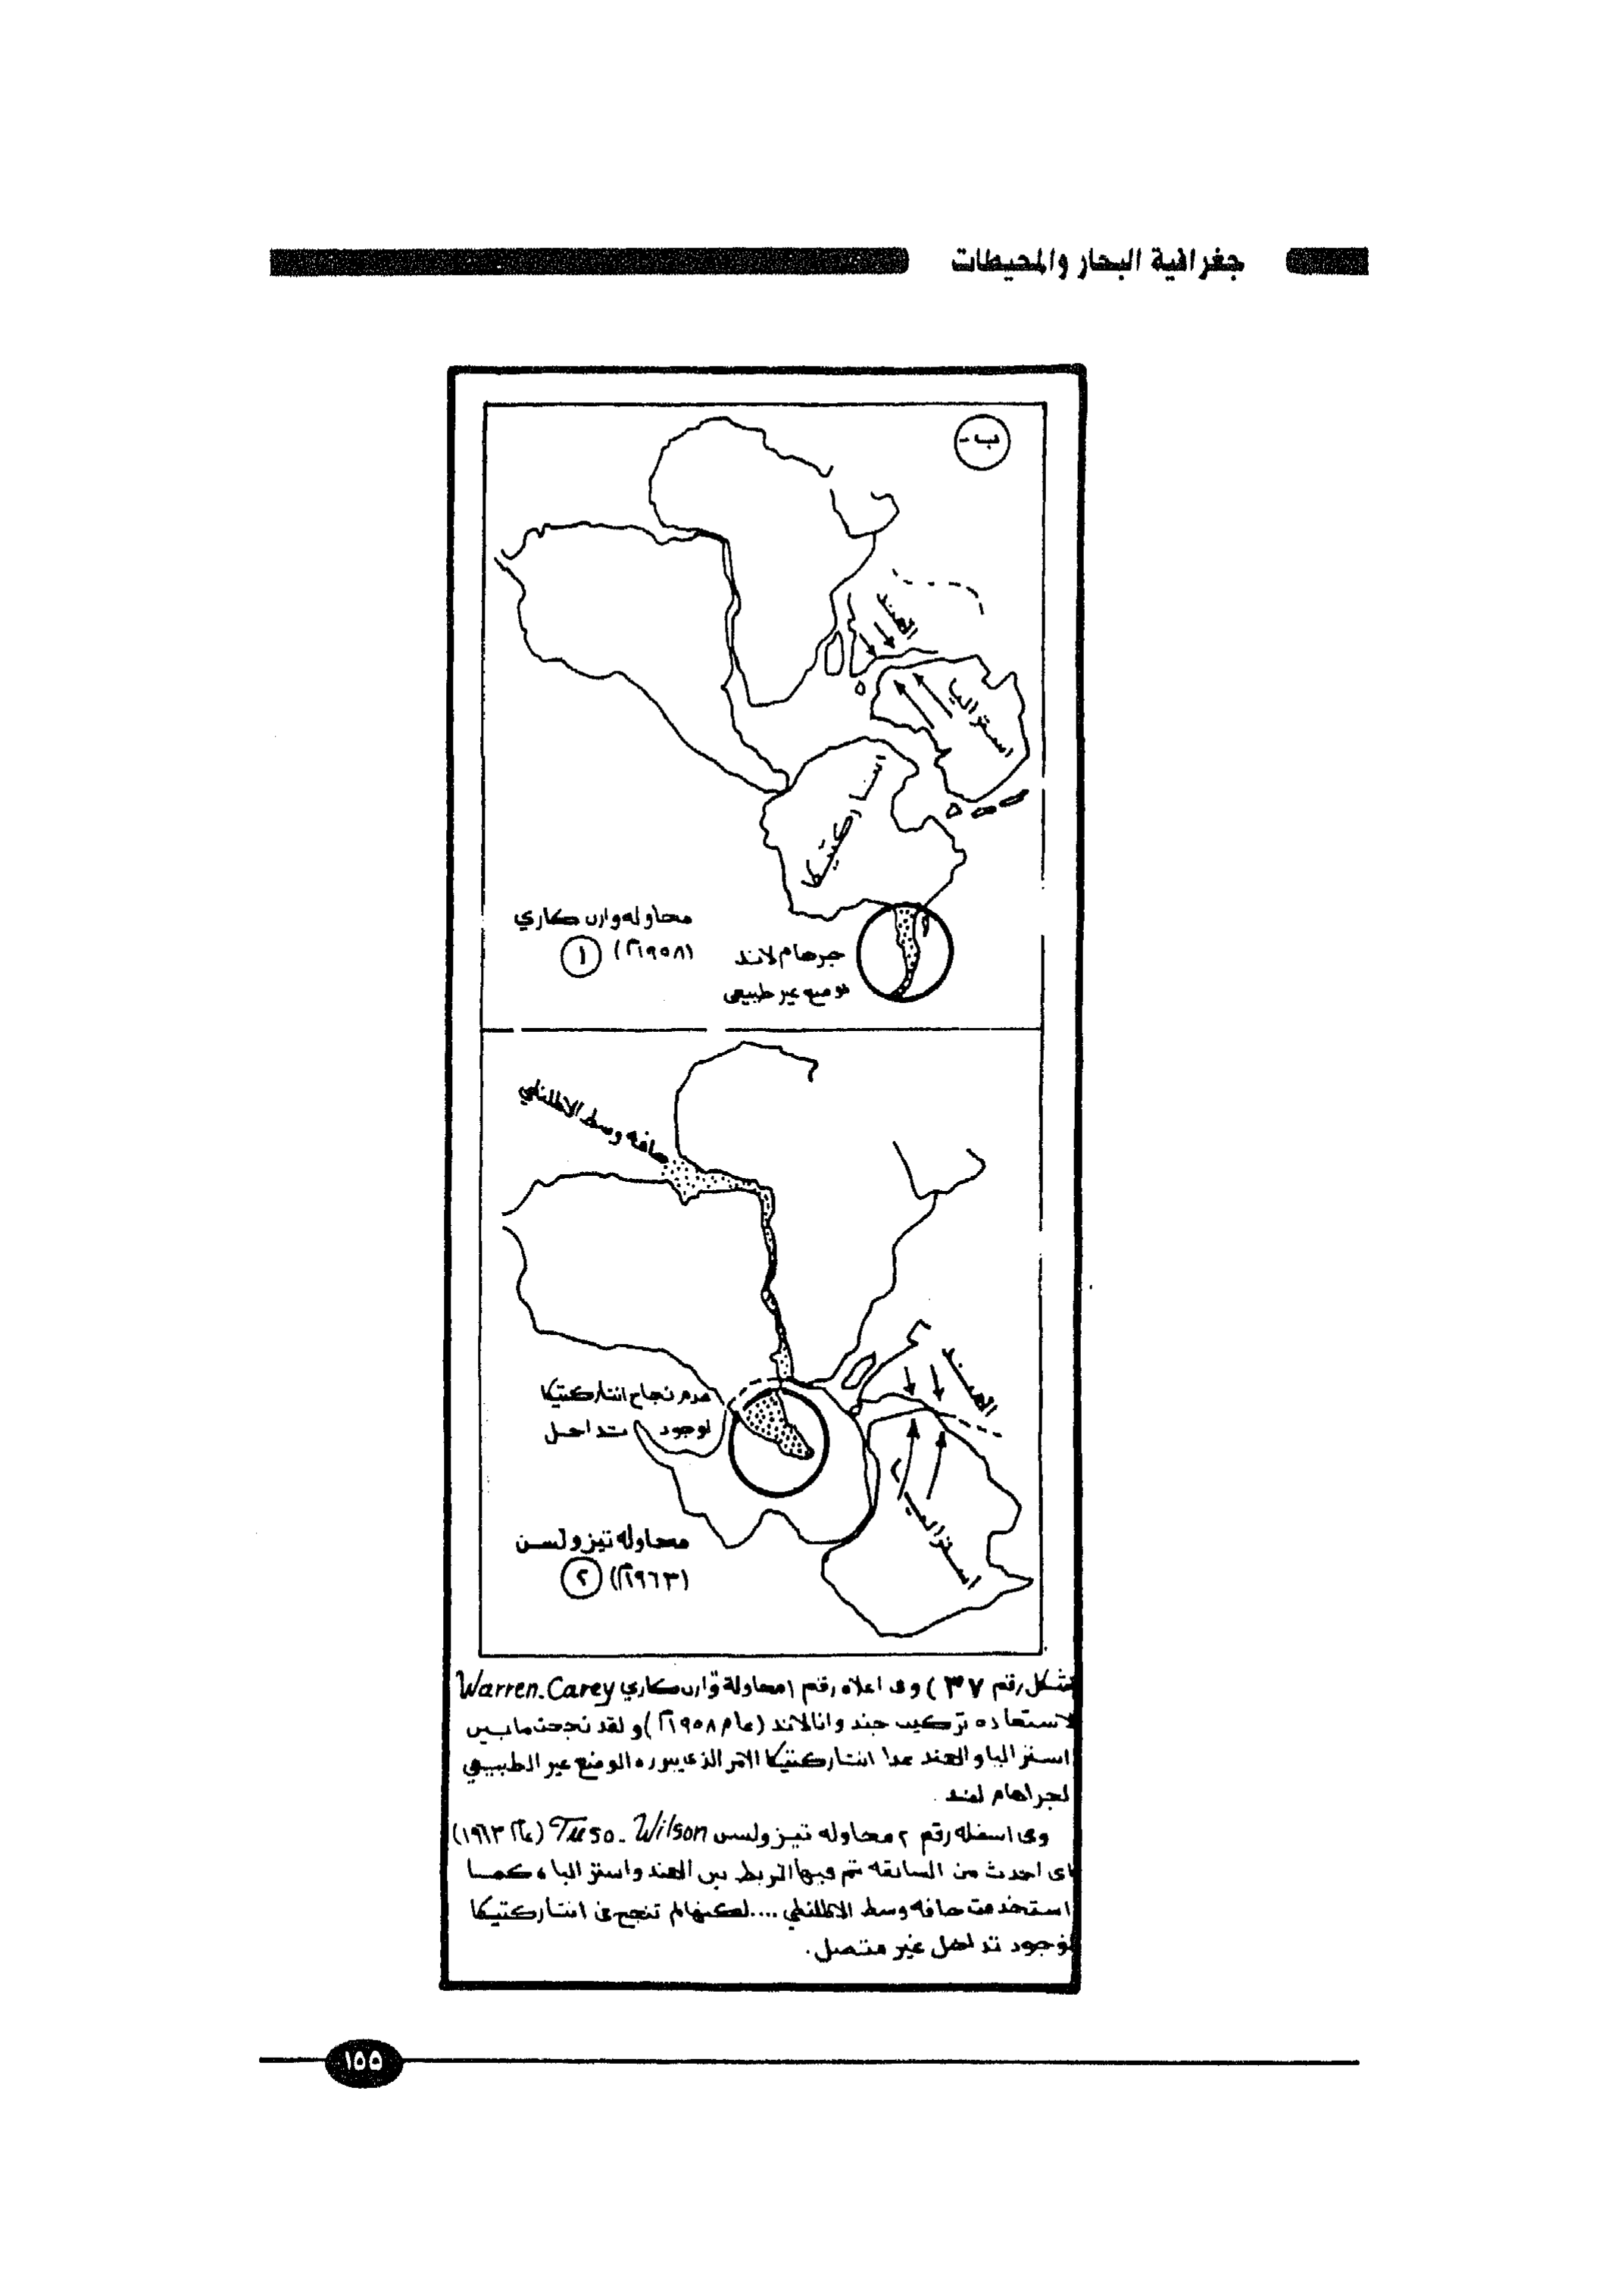 جغرافية البحار والمحيطات
ب-
الهند
استراليا
انتاركتيكا
محاوله وارن كاري
(١٩٥٨م) ١
جرهام لاند
توضيع غير طبيعي
حافه وسط الاطلنطي
الهند
استراليا
عدم نجاح انتاركتيكا
لوجود تداخل
محاوله تيزولسن
(١٩٦٣م) ٢
شكل رقم ٣٧ ) وفى اعلاه رقم ١ محاولة وارن كاري Warren. Carey
لاستعاده تركيب جند وانالاند (عام ١٩٥٨م) ولقد نجحت مابين
استراليا والهند عدا انتاركتيكا الامر الذى يبرره الوضع غير الطبيعي
لجراهام لاند.
وفى اسفله رقم ٢ محاوله تيزولسن Tuso - Wilson (عام ١٩٦٣م)
احدث من السابقه تم فيها الربط بين الهند واستراليا ، كمــا
استخدمت حافه وسط الاطلنطي .... لكنها لم تنجح فى انتاركتيكا
لوجود تداخل غير متصل.
١٥٥